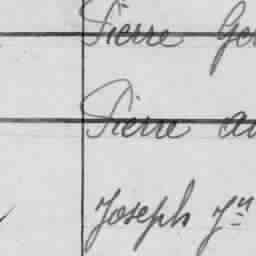 Pierre Ge
Pierre au
Joseph Jn